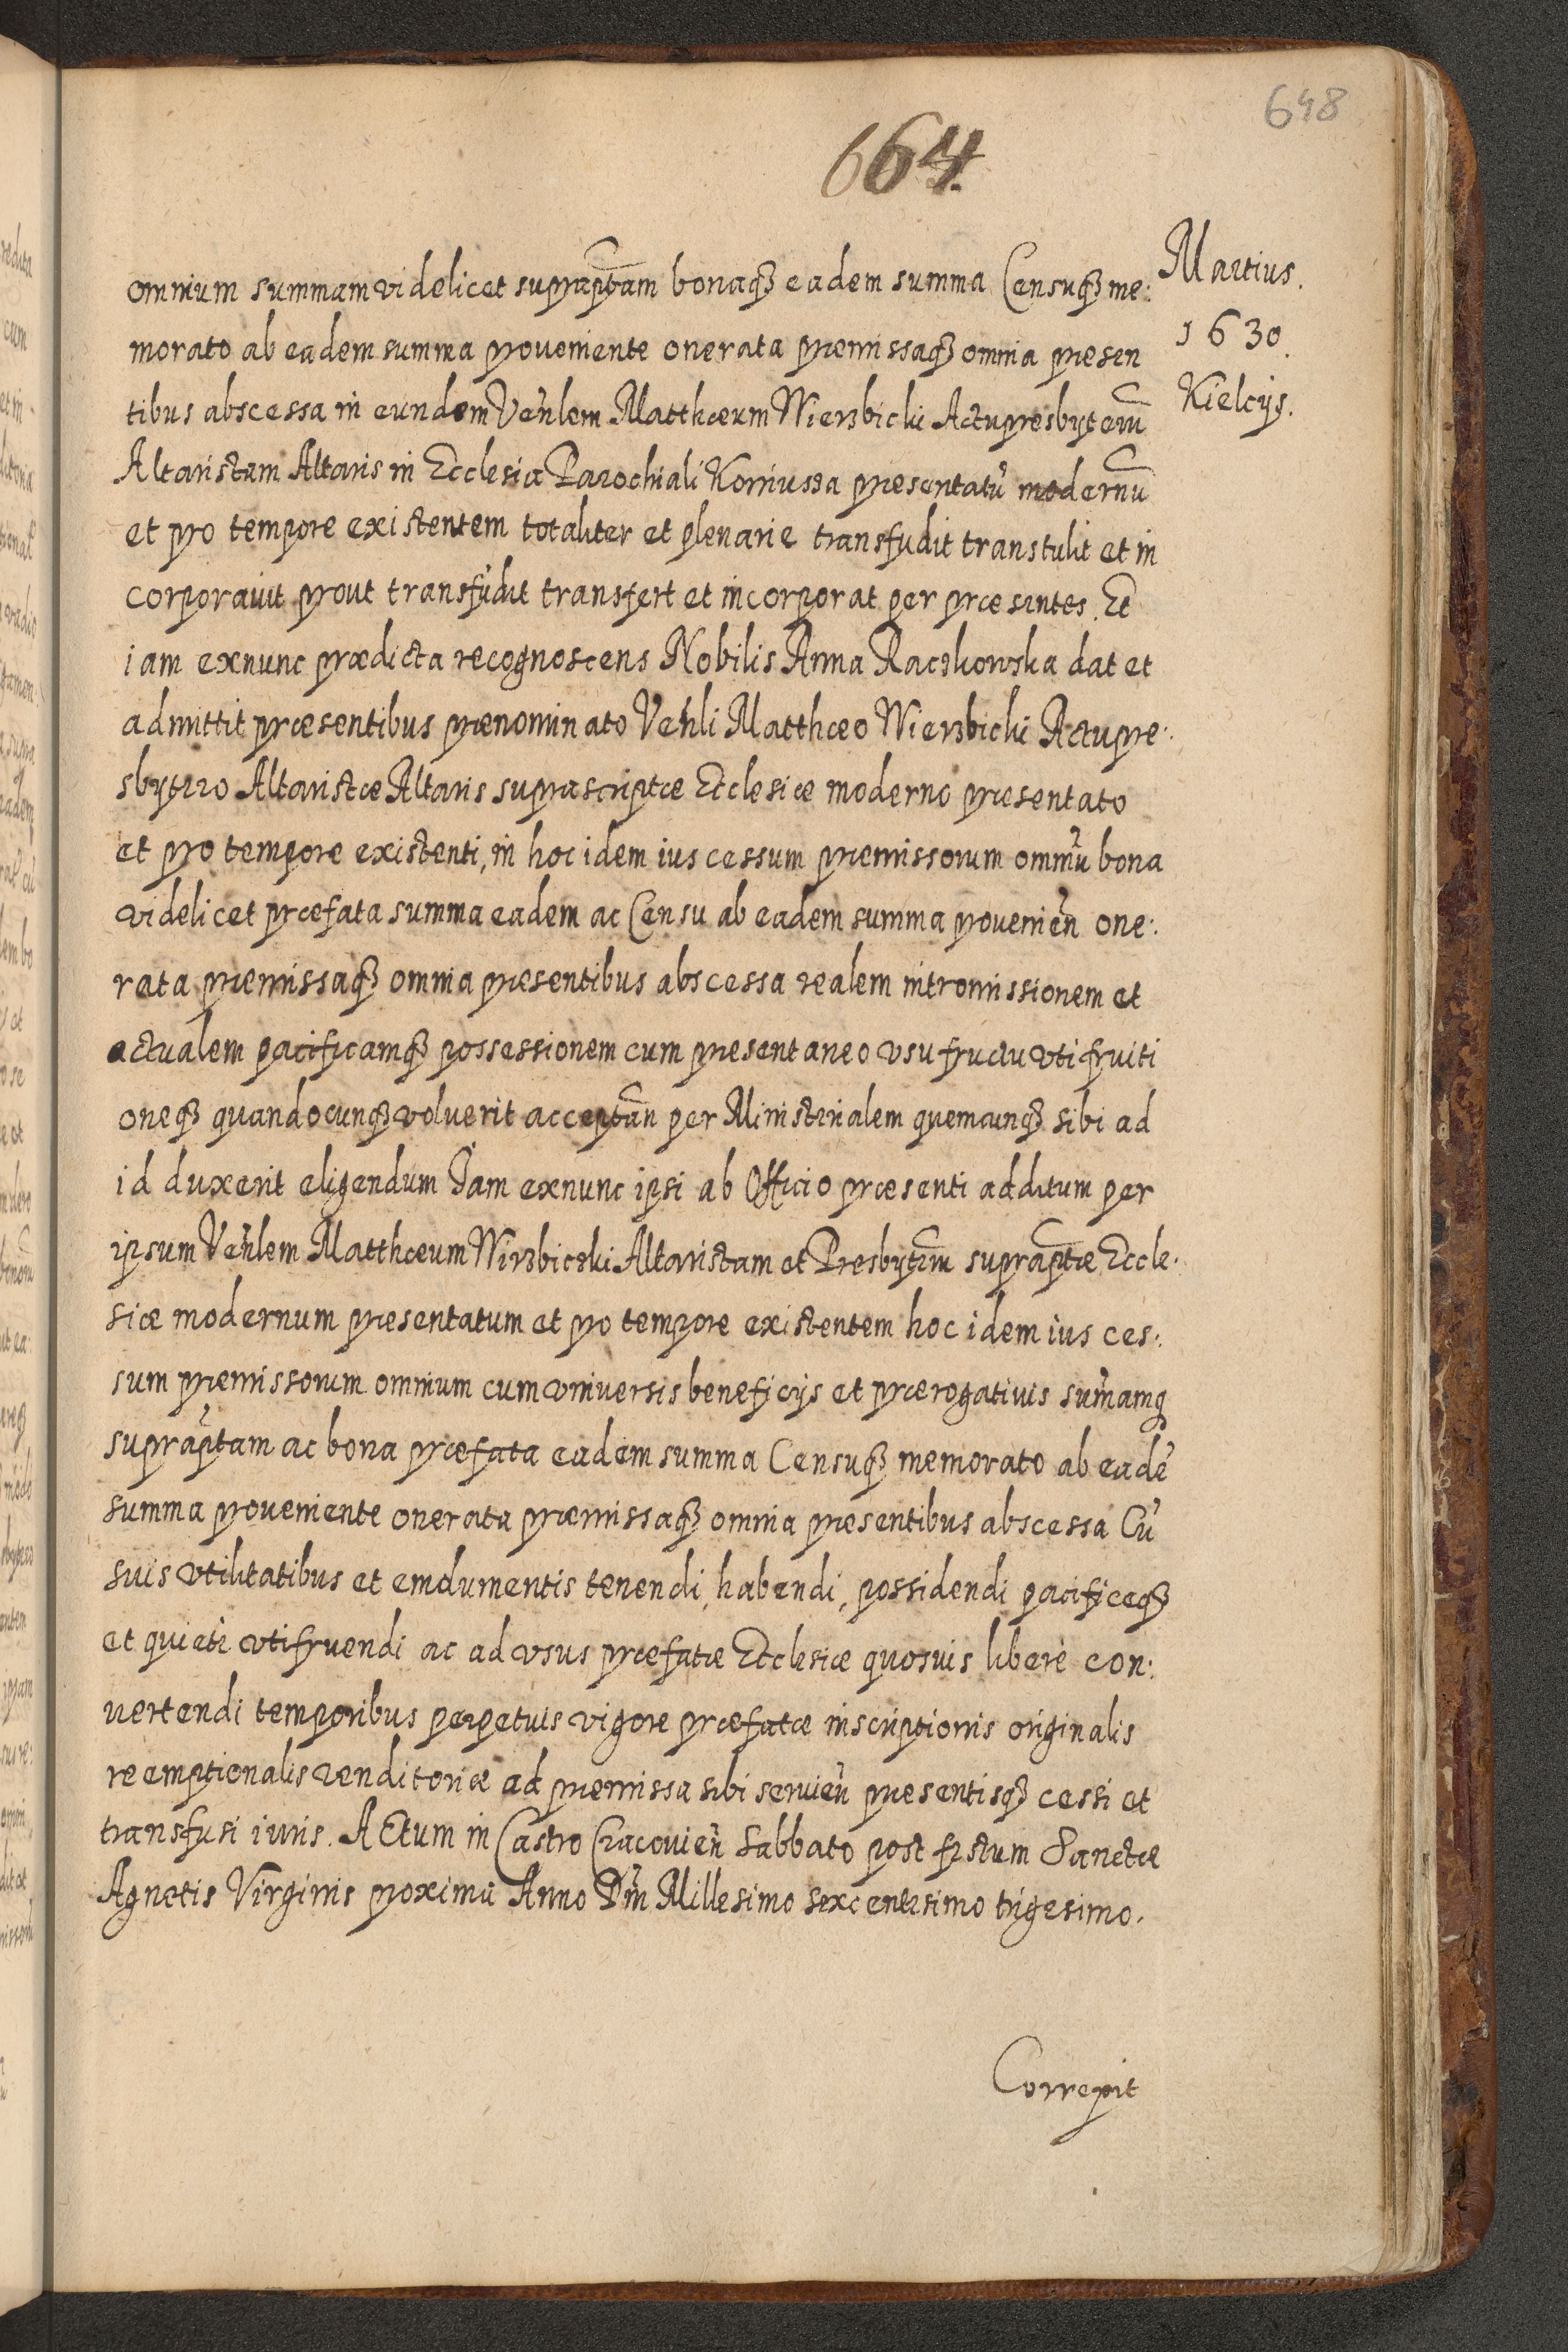 648
664.
Martius.
1630.
Kielcijs.
omnium summam videlicet supraptam bonaq3 eadem summa Censuq3 me:
morato ab eadem summa proueniente onerata premissaq3 omnia presen
tibus abscessa in eundem Venlem Matthæum Wierzbicki Actupresbyterū
Altaristam Altaris in Ecclesia Parochiali Koniussa presentatū modernū
et pro tempore existentem totaliter et plenarie transfudit transtulit et in
corporauit prout transfudit transfert et incorporat per præsentes. Et
iam exnunc prædicta recognoscens Nobilis Anna Raczkowska dat et
admittit præsentibus prænominato Venli Matthæo Wierzbicki Actupre:
sbytero Altaristæ Altaris suprascriptæ Ecclesiæ moderno presentato
et pro tempore existenti, in hoc idem ius cessum premissorum omniū bona
videlicet præfata summa eadem ac Censu ab eadem summa prouenien one:
rata premissaq3 omnia presentibus abscessa realem intromissionem et
actualem pacificamq3 possessionem cum presentaneo vsufructu vtifruiti
oneq3 quandocunq3 voluerit acceptan per Ministerialem quemcunq3 sibi ad
id duxerit eligendum Iam exnunc ipsi ab Officio præsenti additum per
ipsum Venlem Matthæum Wirzbiczki Altaristam et Presbyterum supraptæ Eccle:
siæ modernum presentatum et pro tempore existentem hoc idem ius ces:
sum premissorum omnium cum vniuersis beneficijs et prærogatiuis sum̃amq
supraptam ac bona præfata eadem summa Censuq3 memorato ab eadē
summa proueniente onerata præmissaq3 omnia presentibus abscessa Cū
suis vtilitatibus et emolumentis tenendi, habendi, possidendi pacificeq3
et quiete vtifruendi ac ad vsus præfatæ Ecclesiæ quosuis libere con:
uertendi temporibus perpetuis vigore præfatæ inscriptionis originalis
reemptionalis venditoriæ ad premissa sibi seruien presentisq3 cessi et
transfusi iuris. Actum in Castro Cracouien Sabbato post festum Sanctæ
Agnetis Virginis proximū Anno Dni Millesimo sexcentesimo trigesimo.
Correxit